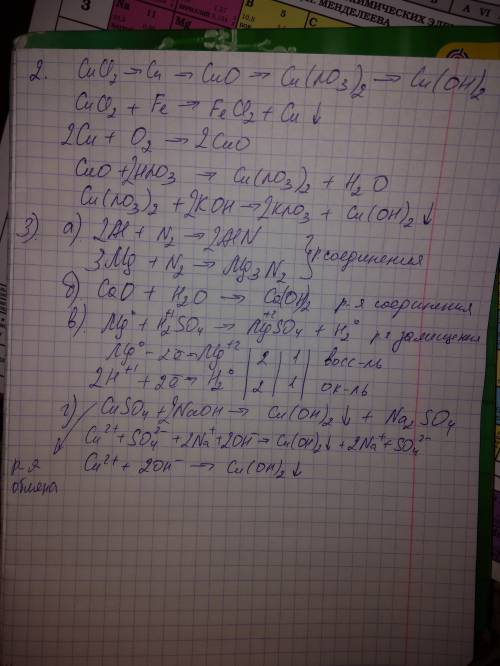 ХИМИЧЕСКИХ ЭЛЕ
МЕНДЕЛЕЕВА
A VI
3 Na 11 Mg B 5 C
2. CuCl₂ → Cu → CuO → Cu(NO₃)₂ → Cu(OH)₂
CuCl₂ + Fe → FeCl₂ + Cu↓
2Cu + O₂ → 2CuO
CuO + 2HNO₃ → Cu(NO₃)₂ + H₂O
Cu(NO₃)₂ + 2KOH → 2KNO₃ + Cu(OH)₂↓
3). а) 2Al + N₂ → 2AlN
3Mg + N₂ → Mg₃N₂ } р соединения
б) CaO + H₂O → Ca(OH)₂ р-я соединения
в) Mg⁰ + H₂⁺¹SO₄ → Mg⁺²SO₄ + H₂⁰ р-я замещения
Mg⁰ - 2ē → Mg⁺² | 2 | 1 | восс-ль
2H⁺¹ + 2ē → H₂⁰ | 2 | 1 | ок-ль
г) CuSO₄ + 2NaOH → Cu(OH)₂↓ + Na₂SO₄
Cu²⁺ + SO₄²⁻ + 2Na⁺ + 2OH⁻ → Cu(OH)₂↓ + 2Na⁺ + SO₄²⁻
р-я обмена
Cu²⁺ + 2OH⁻ → Cu(OH)₂↓